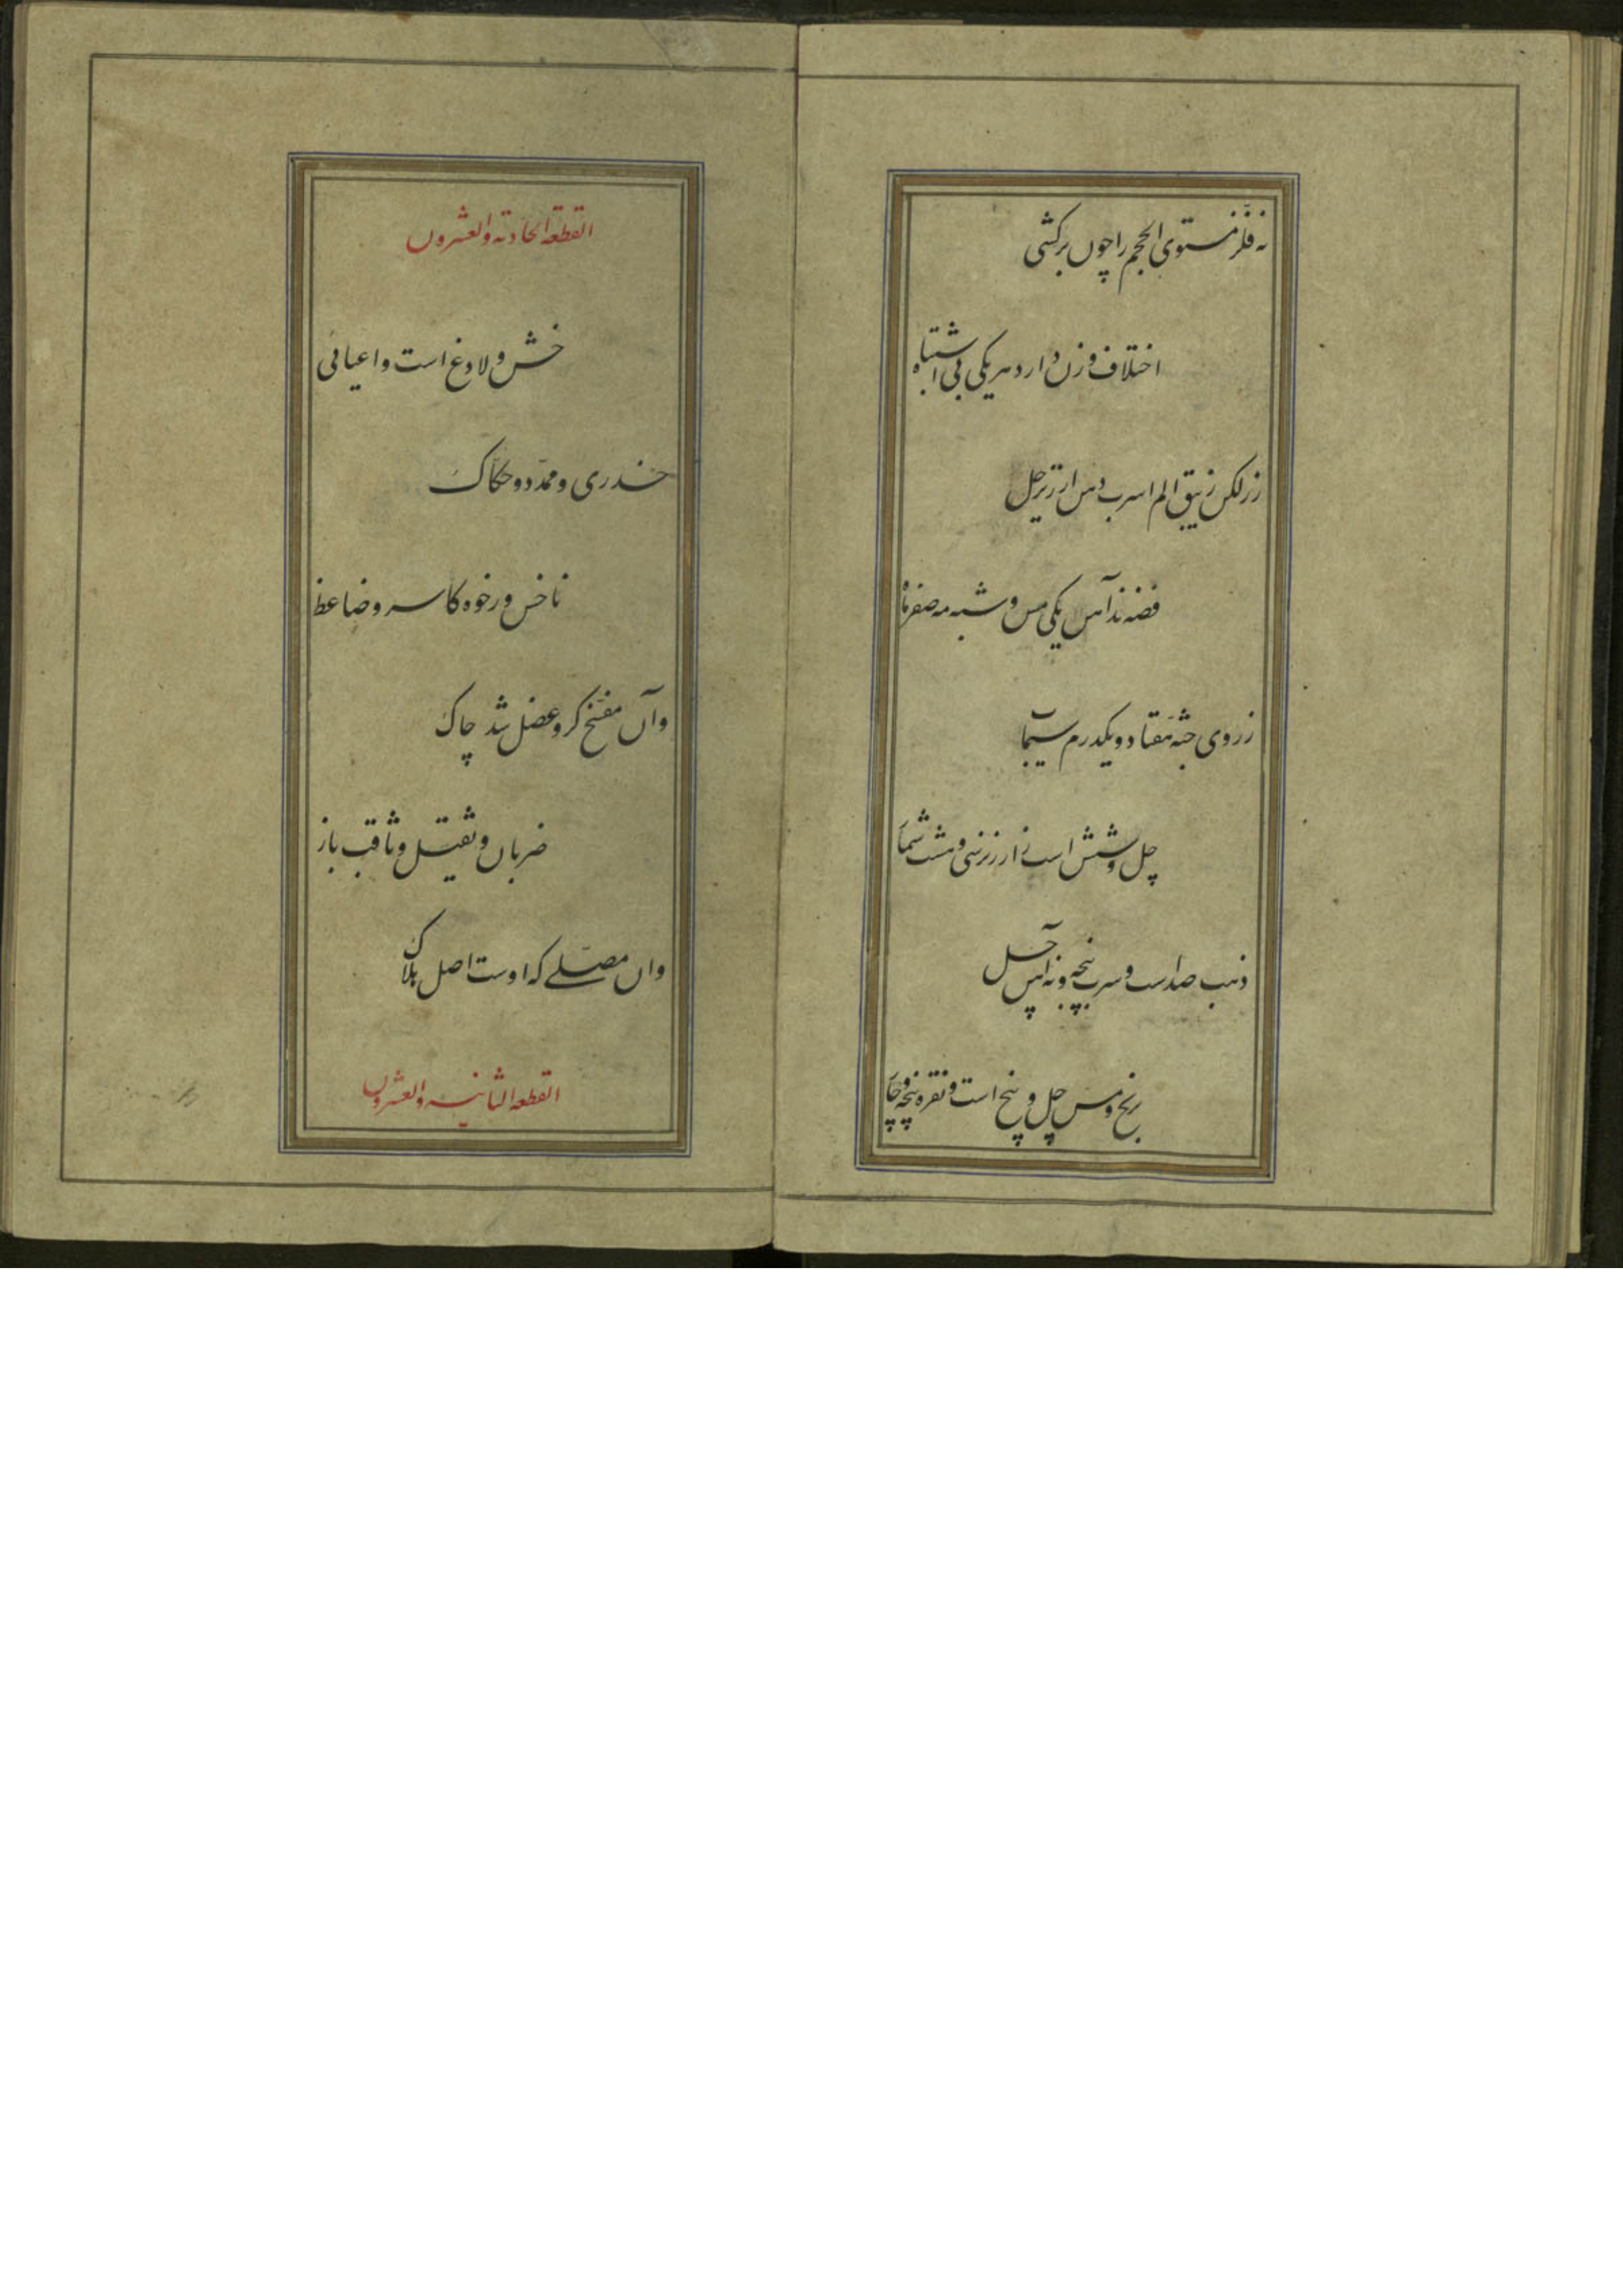 نه فلز مستوی الحجم را چون برکشی
اختلاف وزن دارد هر یکی بی اشتباه
زر لکن زیبق الم اسرب دهن ارزیز حل
فضه ند آهن یکی مس و شبه مه صفر ماه
ز روی جثه هفتاد و یکدرم سیماب
چل و شش است ز ارزیز سی و هشت شمار
ذهب صد است و سرب پنجه و نه آهن چل
برنج و مس چل و پنج است و نقره پنجه و چار
القطعه الحادیه والعشرون
خشن و لادغ است و اعیائی
خدری و ممدد و حکاک
ناخس و رخوه کاسر و ضاغط
وآن مفسخ کزو عضل شد چاک
ضربان و ثقیل و ثاقب باز
وان مسلی که اوست اصل هلاک
القطعه الثانیه والعشرون